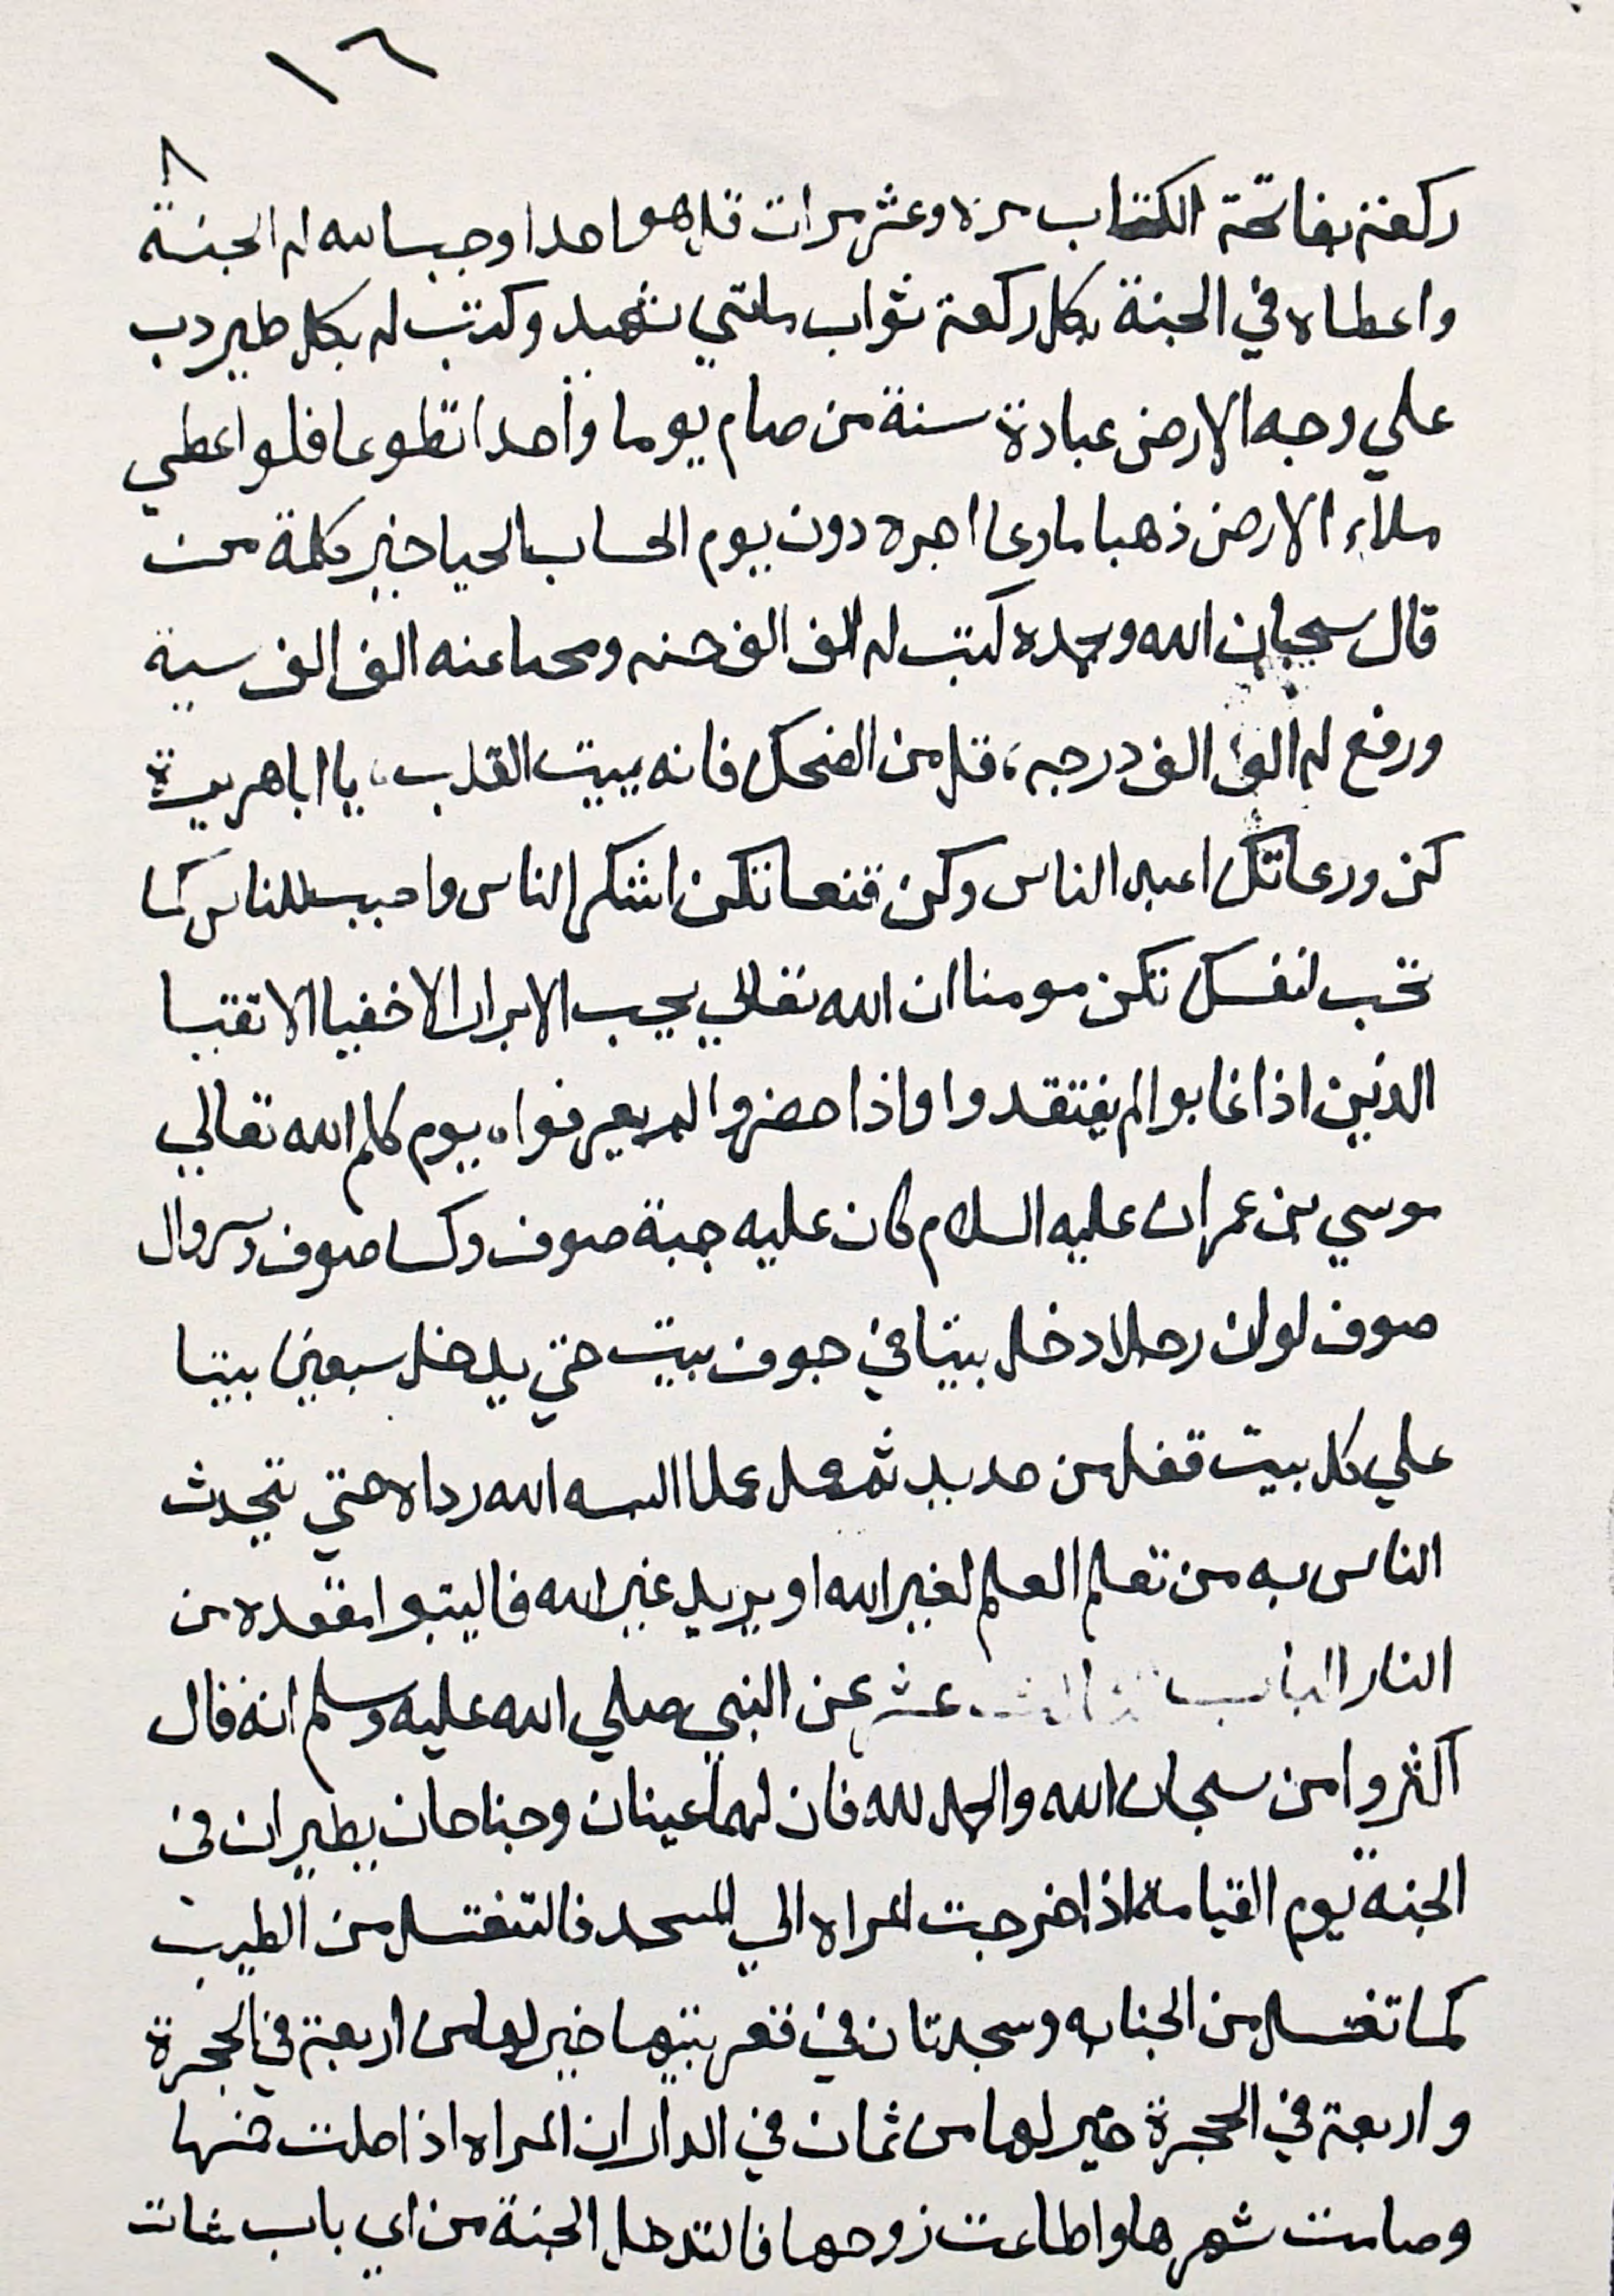 ١٦
٨
ركعة بفاتحة الكتاب مرة وعشر مرات قل هو احد اوجب الله له الجنة
واعطاه في الجنة بكل ركعة ثواب مايتي شهيد وكتب له بكل طير دب
علي وجه الارض عبادة سنة من صام يوما واحدا تطوعا فلو اعطي
ملاء الارض ذهبا ما وعا اجره دون يوم الحساب الحيا خير كلمة من
قال سبحان الله وبحمده كتب له الف الف حسنه ومحا عنه الف الف سية
ورفع له الف الف درجه، قل من الضحك فانه يميت القلب، يا ابا هريرة
كن ورعا تك اعبد الناس وكن قنعا تكن اشكر الناس واحبب للناس كما
تحب لنفسك تكن مومنا ان الله تعالي يحب الابرار الاخفيا الاتقيا
الذين اذا غابوا لم يفتقدوا واذا حضروا لم يعرفوا، يوم كلم الله تعالي
موسي بن عمران عليه السلام كان عليه جبة صوف وكسا صوف وسروال
صوف لو ان رجلا دخل بيتا في جوف بيت حتي يدخل سبعين بيتا
علي كل بيت قفل من حديد ثم عمل عملا البسه الله رداه حتي يتحدث
الناس به من تعلم العلم لغير الله او يريد غير الله فاليتبوا مقعده من
النار الباب عشر عن النبي صلي الله عليه وسلم انه قال
اكثروا من سبحان الله والحمد لله فان لهما عينان وجناحان يطيران في
الجنه يوم القيامة اذا خرجت المراه الي المسجد فالتغتسل من الطيب
كما تغتسل من الجنابه وسجدتان في قعر بيتها خير لها من اربعة في الحجرة
واربعة في الحجرة خير لها من ثمان في الدار ان المراه اذا صلت خمسها
وصامت شهرها واطاعت زوجها فالتدخل الجنة من اي باب شات